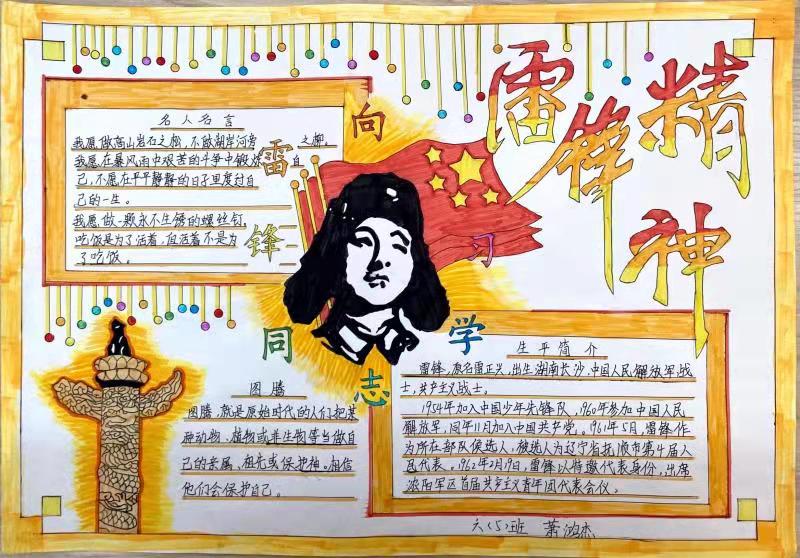 雷锋精神
向雷锋同志学习
名人名言
我愿做高山岩石之松,不做湖岸河旁之柳,
我愿在暴风雨中艰苦的斗争中锻炼自
己,不愿在平平静静的日子里度过自
己的一生。
我愿做一颗永不生锈的螺丝钉,
吃饭是为了活着,但活着不是为
了吃饭。
图腾
图腾,就是原始时代的人们把某
种动物、植物或非生物等当做自
己的亲属、祖先或保护神。相信
他们会保护自己。
生平简介
雷锋,原名雷正兴,出生湖南长沙,中国人民解放军战
士,共产主义战士。
1954年加入中国少年先锋队,1960年参加中国人民
解放军,同年11月加入中国共产党。1961年5月,雷锋作
为所在部队候选人,被选为辽宁省抚顺市第4届人
民代表。1962年2月19日,雷锋以特邀代表身份,出席
沈阳军区首届共产主义青年团代表会议。
六(5)班 萧鸿杰